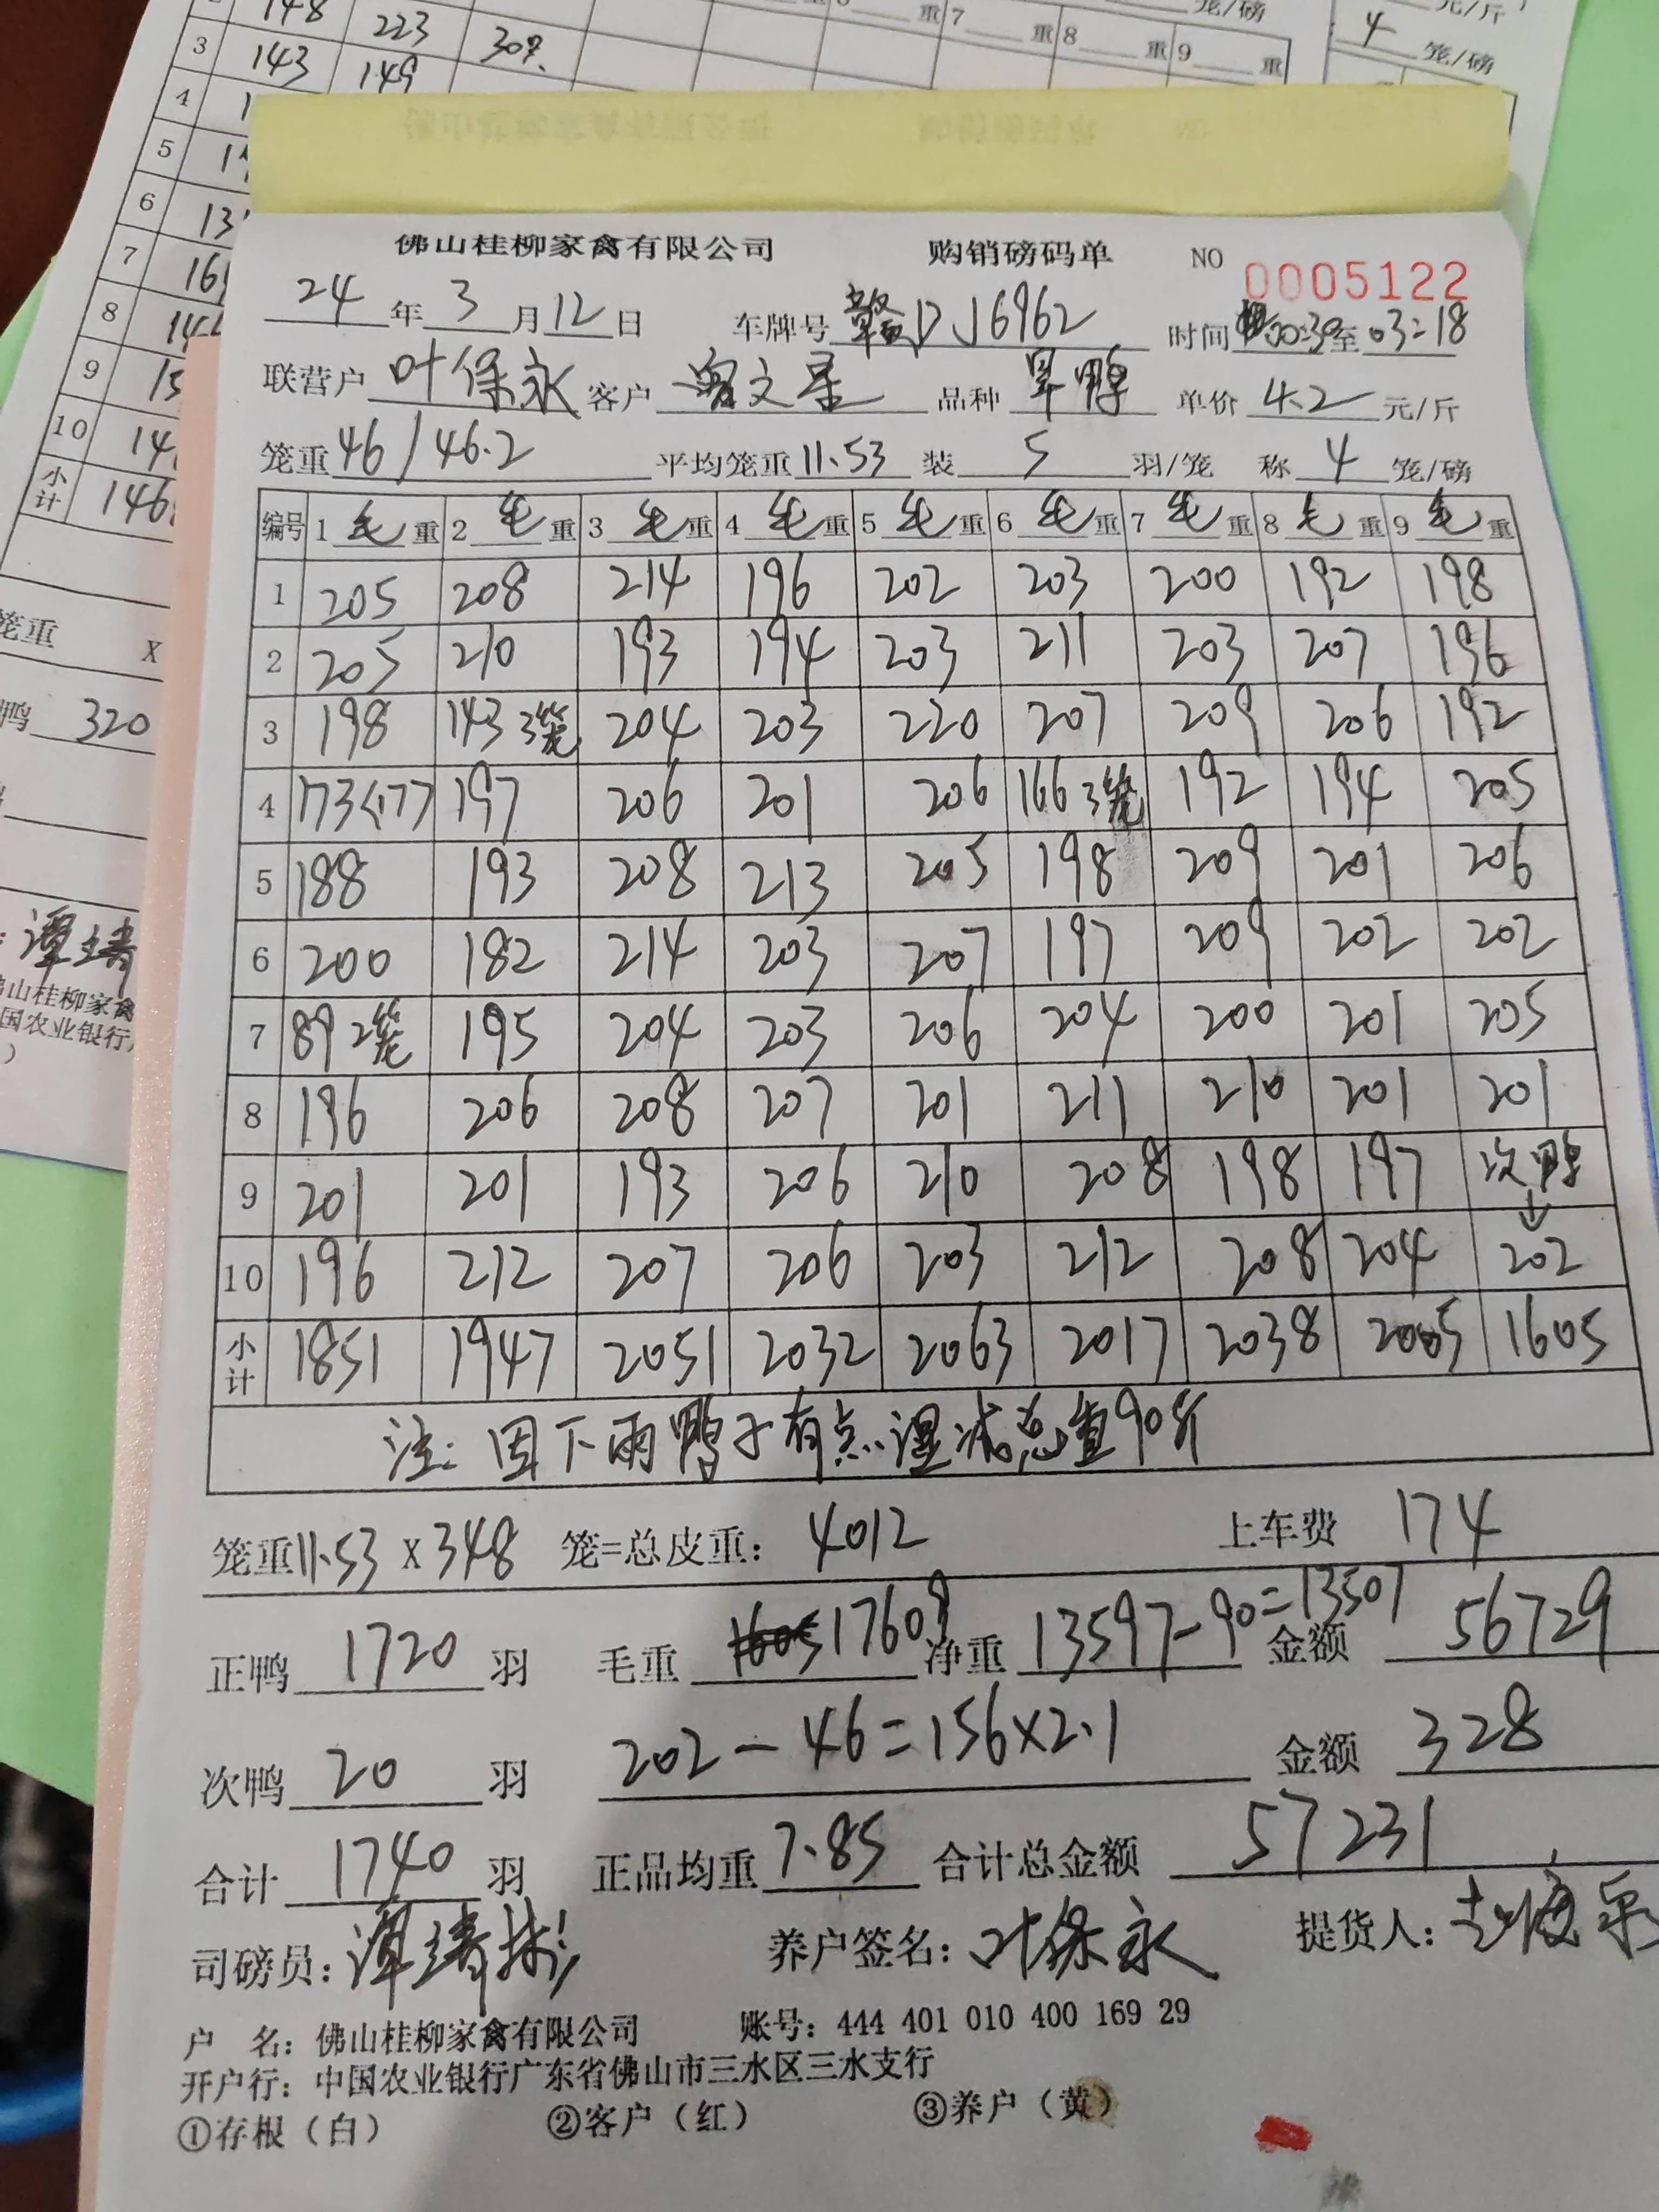 148 223 307.
3 143 149
4
5
6
7
8
9
10
小计
重7 重8 重9 重
笼/磅
元/斤
4 笼/磅
笼重 X
鸭 320
谭靖
山桂柳家禽
国农业银行
佛山桂柳家禽有限公司 购销磅码单 NO 0005122
24年3月12日 车牌号 赣DJ6962 时间 00:30至03:18
联营户 叶保永 客户 文星 品种 旱鸭 单价 4.2 元/斤
笼重 46/46.2 平均笼重 11.53 装 5 羽/笼 称 4 笼/磅
编号 1毛重 2毛重 3毛重 4毛重 5毛重 6毛重 7毛重 8毛重 9毛重
1 205 208 214 196 202 203 200 192 198
2 205 210 193 194 203 211 203 207 196
3 198 143 3笼 204 203 220 207 209 206 192
4 173<177> 197 206 201 206 166 3笼 192 194 205
5 188 193 208 213 205 198 209 201 206
6 200 182 214 203 207 197 209 202 202
7 89 2笼 195 204 203 206 204 200 201 205
8 196 206 208 207 201 211 210 201 201
9 201 201 193 206 210 208 198 197 次鸭↓
10 196 212 207 206 203 212 208 204 202
小计 1851 1947 2051 2032 2063 2017 2038 2005 1605
注: 因下雨鸭子有点湿减总重90斤
笼重11.53 X 348 笼=总皮重: 4012 上车费 174
正鸭 1720 羽 毛重 17609 净重 13597-90=13507 金额 56729
次鸭 20 羽 202-46=156×2.1 金额 328
合计 1740 羽 正品均重 7.85 合计总金额 57231
司磅员: 谭靖彬 养户签名: 叶保永 提货人:
户 名: 佛山桂柳家禽有限公司 账号: 444 401 010 400 169 29
开户行: 中国农业银行广东省佛山市三水区三水支行
①存根（白） ②客户（红） ③养户（黄）